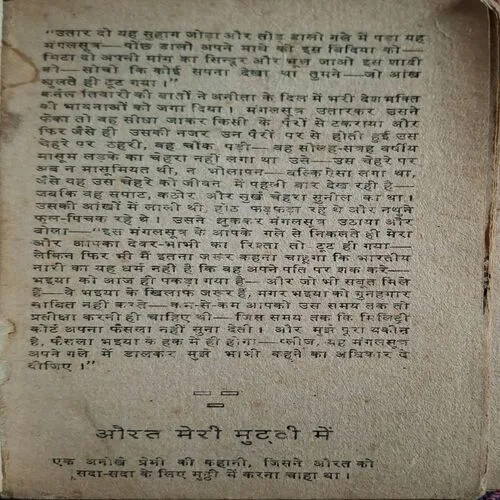 "उतार दो यह सुहाग जोड़ा और तोड़ डालो गले में पड़ा यह
मंगलसूत्र—पोंछ डालो अपने माथे की इस बिंदिया को—
मिटा दो अपनी मांग का सिन्दूर और भूल जाओ इस शादी
को—सोचो कि कोई सपना देखा था तुमने—जो आंख
खुलते ही टूट गया।"
कर्नल तिवारी की बातों ने अनीता के दिल में भरी देशभक्ति
की भावनाओं को जगा दिया। मंगलसूत्र उतारकर उसने
फेंका तो वह सीधा जाकर किसी के पैरों से टकराया और
फिर जैसे ही उसकी नजर उन पैरों पर से होती हुई उस
चेहरे पर ठहरी, वह चौंक पड़ी—वह सोलह-सत्रह वर्षीय
मासूम लड़के का चेहरा नहीं लगा था उसे—उस चेहरे पर
अब न मासूमियत थी, न भोलापन—बल्कि ऐसा लगा था,
जैसे वह उस चेहरे को जीवन में पहली बार देख रही है—
जबकि वह सपाट, कठोर और सुर्ख चेहरा सुनील का था।
उसकी आंखों में लाली थी, होंठ फड़फड़ा रहे थे और नथुने
फूल-पिचक रहे थे। उसने झुककर मंगलसूत्र उठाया और
बोला—"इस मंगलसूत्र के आपके गले से निकलते ही मेरा
और आपका देवर-भाभी का रिश्ता तो टूट ही गया—
लेकिन फिर भी मैं इतना जरूर कहना चाहूंगा कि भारतीय
नारी का यह धर्म नहीं है कि वह अपने पति पर शक करे—
भइया को आज ही पकड़ा गया है—और जो भी सबूत मिले
हैं—वे भइया के खिलाफ जरूर हैं, मगर भइया को गुनहगार
साबित नहीं करते—कम-से-कम आपको उस समय तक तो
प्रतीक्षा करनी ही चाहिए थी—जिस समय तक कि मिलिट्री
कोर्ट अपना फैसला नहीं सुना देती। और मुझे पूरा यकीन
है, फैसला भइया के हक में ही होगा—प्लीज, यह मंगलसूत्र
अपने गले में डालकर मुझे भाभी कहने का अधिकार दे
दीजिए।"
औरत मेरी मुट्ठी में
एक अनोखे प्रेमी की कहानी, जिसने औरत को
सदा-सदा के लिए मुट्ठी में करना चाहा था।